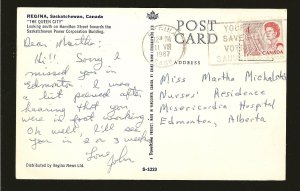 REGINA, Saskatchewan, Canada
"THE QUEEN CITY"
Looking south on Hamilton Street towards the
Saskatchewan Power Corporation Building.
Dear Martha:
Hi!! Sorry I
missed you in
Edmonton. I was a
bit peeved after
hearing that you
were in fact looking
Oh well, I'll see
you in 2 a 3 weeks
Love,
John
Distributed by Regina News Ltd.
POST
CARD
1967
Miss Martha Michalots
Nurses' Residence
Misericordia Hospital
Edmonton, Alberta
S-5323